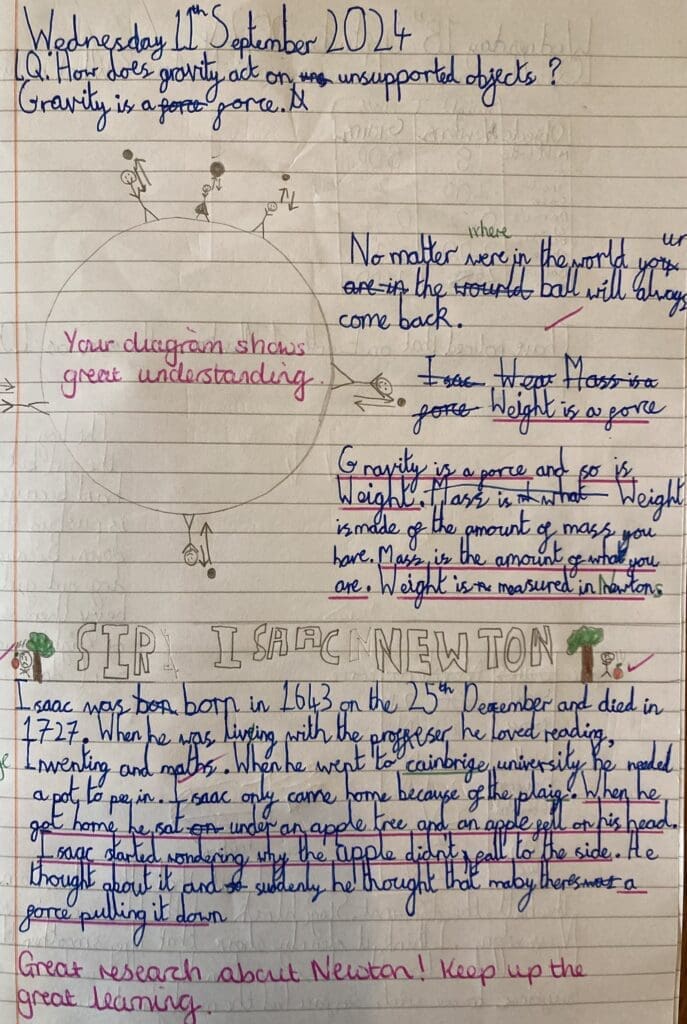 Wednesday 11th September 2024
LQ: How does gravity act on unsupported objects?
Gravity is a force force. N
where
No matter were in the world your
are in the wourld ball will always
come back.
Your diagram shows
great understanding.
Isac Wear Mass is a
force Weight is a force
Gravity is a force and so is
Weight. Mass is what Weight
is made of the amount of mass you
have. Mass is the amount of what you
are. Weight is measured in Newtons
SIR ISAAC NEWTON
Isaac was bon born in 1643 on the 25th December and died in
1727. When he was living with the proffeser he loved reading,
Inventing and maths. When he went to cainbrige university he needed
a pot to pee in. Isaac only came home because of the plaig. When he
got home he sat on under an apple tree and an apple fell on his head.
Isaac started wondering why the apple didn't fall to the side. He
thought about it and so suddenly he thought that maby theres was a
force pulling it down
Great research about Newton! Keep up the
great learning.